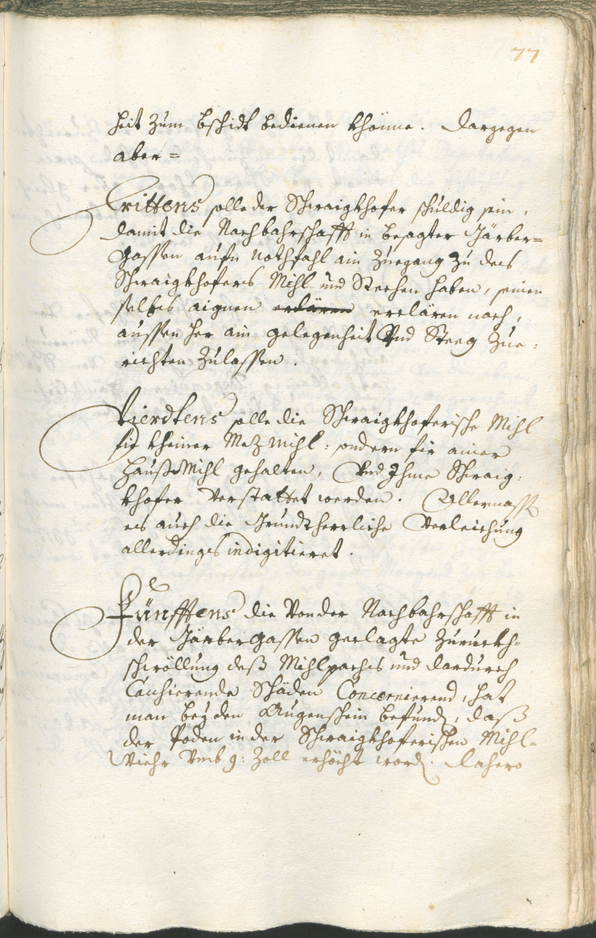 77
heit zum bschidt bedienen khönne. Dargegen
aber =
Drittens solle der Schwaigkhofer schuldig sein,
damit die Nachbahrschafft in besagter Järber=
gassen aufn Nothfahl ain Zuegang zu des
Schwaigkhofers Mihl und Steehen haben, seinen
selbst aignen erclären nach,
aussen her ain gelegenheit und Steeg Zue=
richten Zulassen.
Vierdtens solle die Schwaigkhoferische Mihl
fir kheiner Maz Mihl: sondern fir ainer
Hauß Mihl gehalten, und Ihme Schwaig:
khofer verstattet werden. Allermass
es auch die Grundtherrliche Verleichung
allerdings indigitieret.
Fünfftens die von der Nachbahrschafft in
der Järber gassen geclagte Zuruckh=
schwöllung deß Mihlpachs und dardurch
Causierende Schäden Concernierend, hat
man bey den Augenschein befundt, daß
der Poden in der Schwaigkhoferischen Mihl=
Wiehr umb 9: Zoll erhöcht word. Dahero